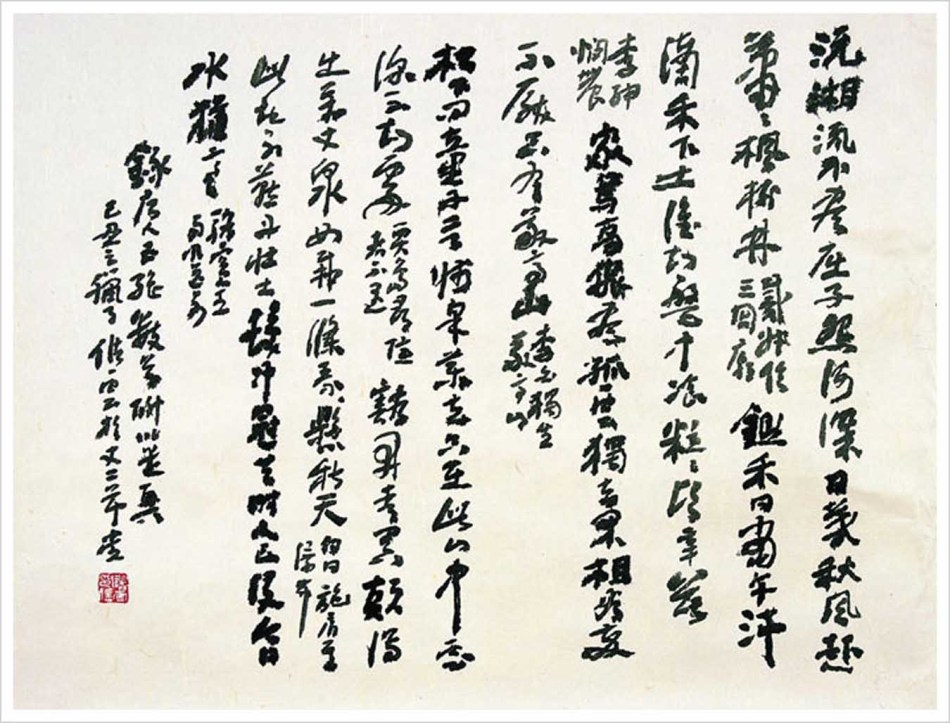 沅湘流不盡屈子怨何深日暮秋風起
蕭〻楓樹林 戴叔倫
三閭廟 鋤禾日當午汗
滴禾下土誰知盤中飧粒〻皆辛苦
李紳
憫農 衆鳥高飛盡孤雲獨去閑相看兩
不厭只有敬亭山 李白獨坐
敬亭山
松下問童子言師采藥去只在此山中雲
深不知處 賈島尋隱
者不遇 豁開青冥顛瀉
出萬丈泉如裁一條素懸秋天 白日 施肩吾
瀑布
此地别燕丹壯士髮衝冠昔時人已没今日
水猶寒 駱賓王
易水送别
錄唐人五絕數首聊以遣興
己丑